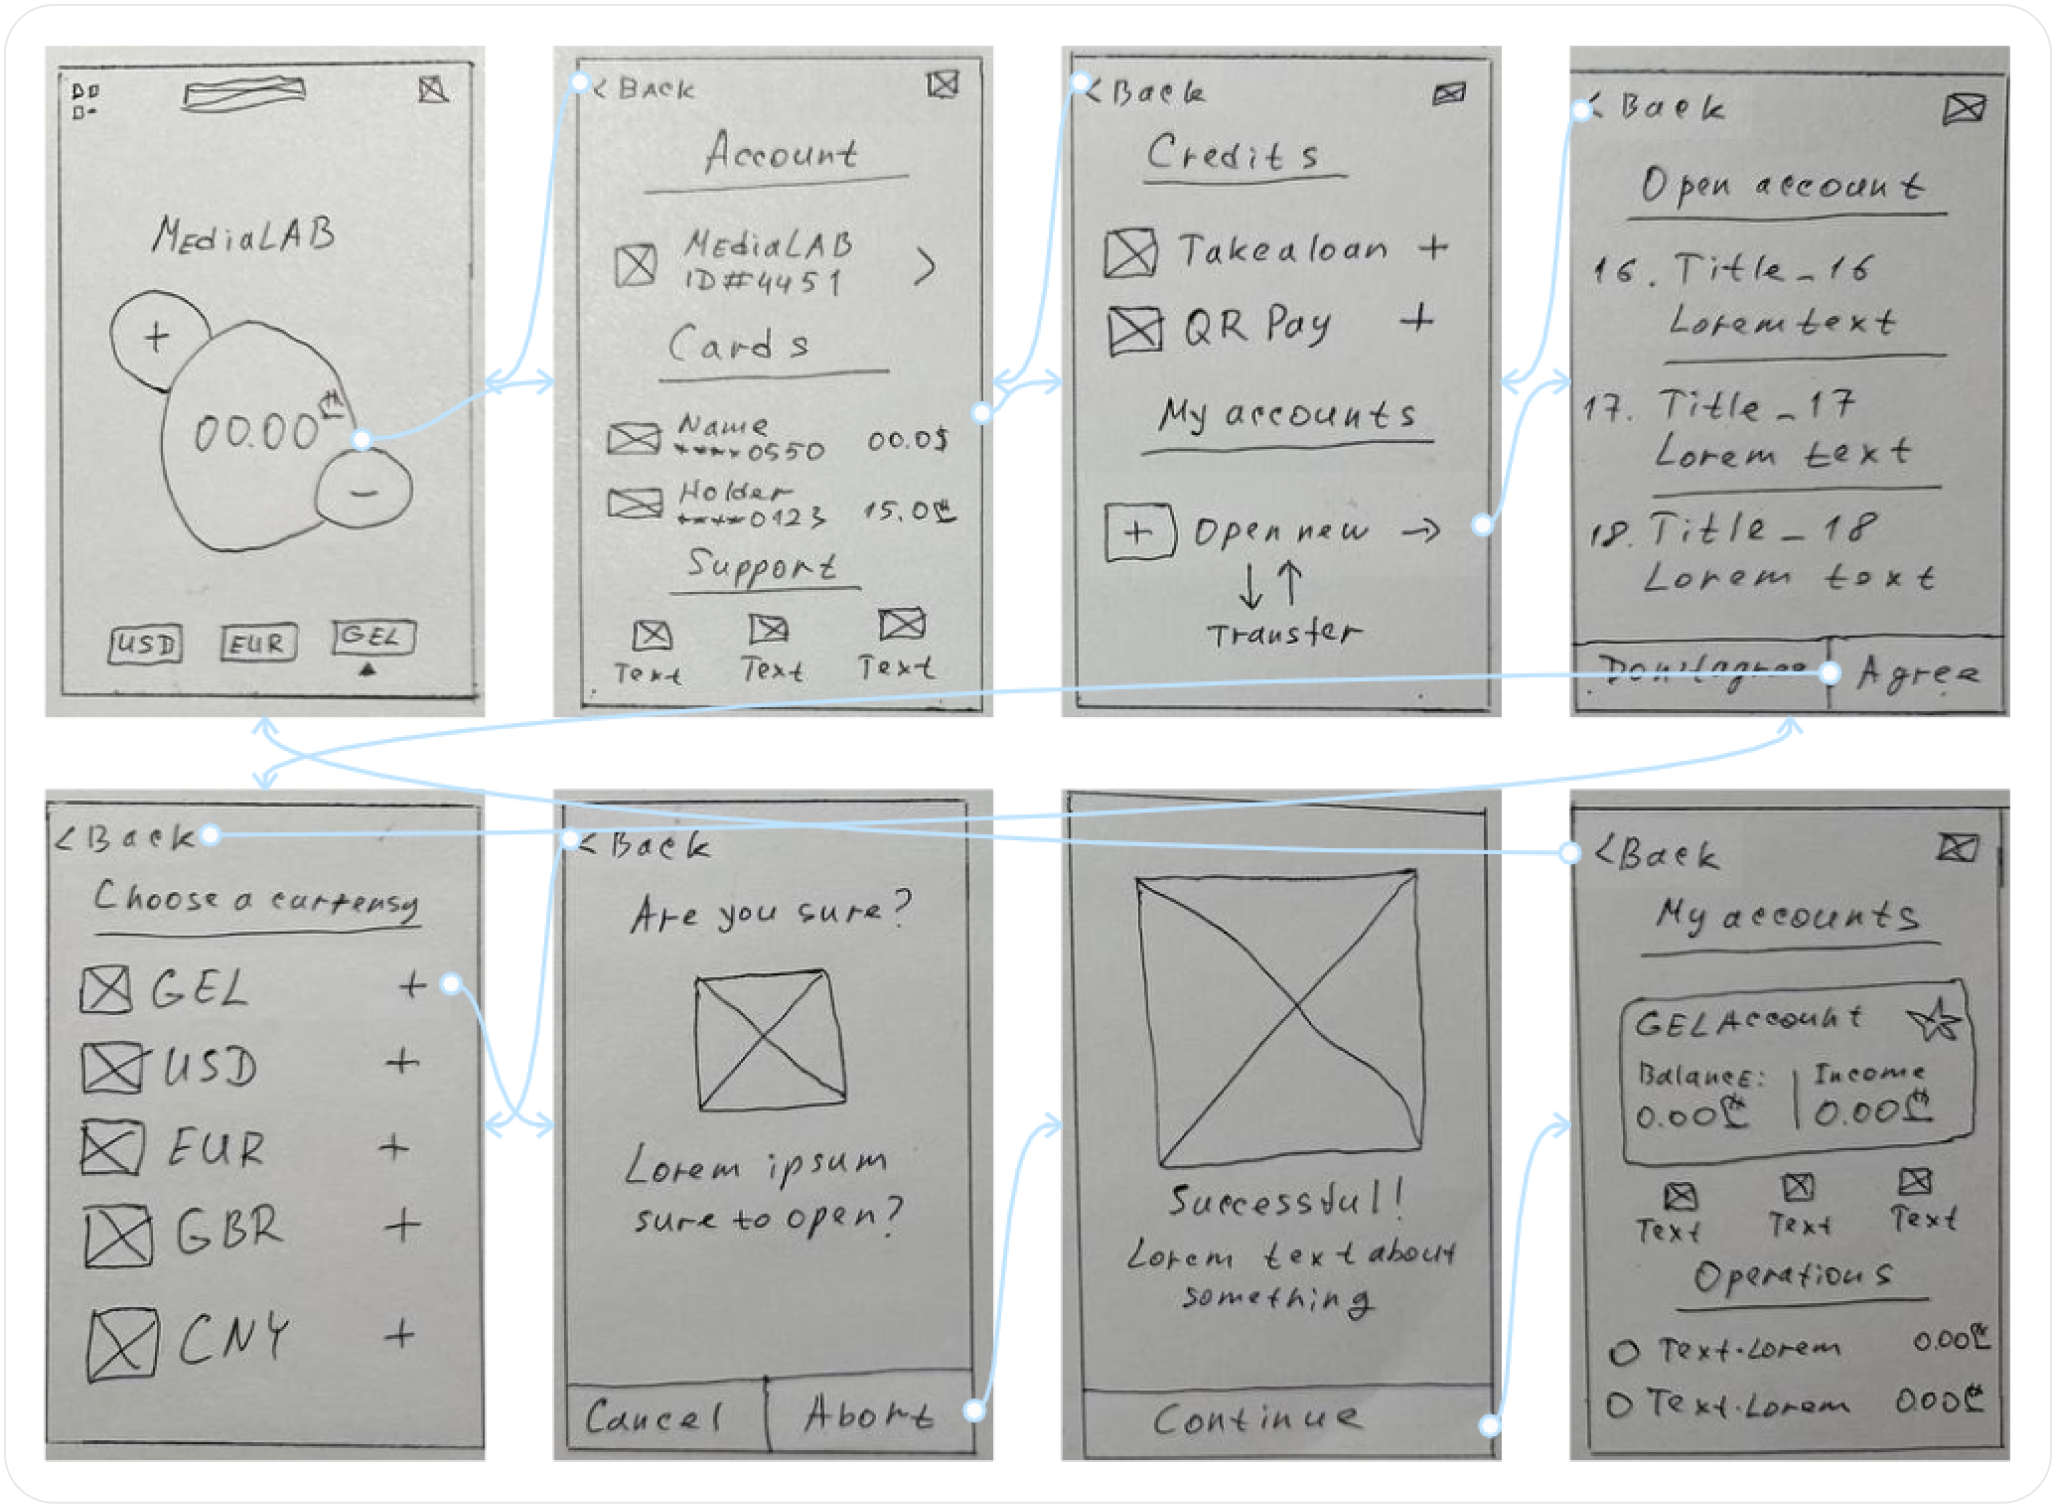 MEdiaLAB
+
00.00₾
−
USD EUR GEL
< BACK
Account
MEdiaLAB
ID#4451
>
Cards
Name
****0550 00.0$
Holder
****0123 15.0₾
Support
Text Text Text
<Back
Credits
Takealoan +
QR Pay +
My accounts
+ Open new →
↓↑
Transfer
<Back
Open account
16. Title_16
Lorem text
17. Title_17
Lorem text
18. Title_18
Lorem text
Don'tagree Agree
<Back
Choose a currensy
GEL +
USD +
EUR +
GBR +
CNY +
<Back
Are you sure?
Lorem ipsum
sure to open?
Cancel Abort
Successful!
Lorem text about
something
Continue
<Back
My accounts
GEL Account
Balance: Income
0.00₾ 0.00₾
Text Text Text
Operations
Text.Lorem 0.00₾
Text.Lorem 0.00₾